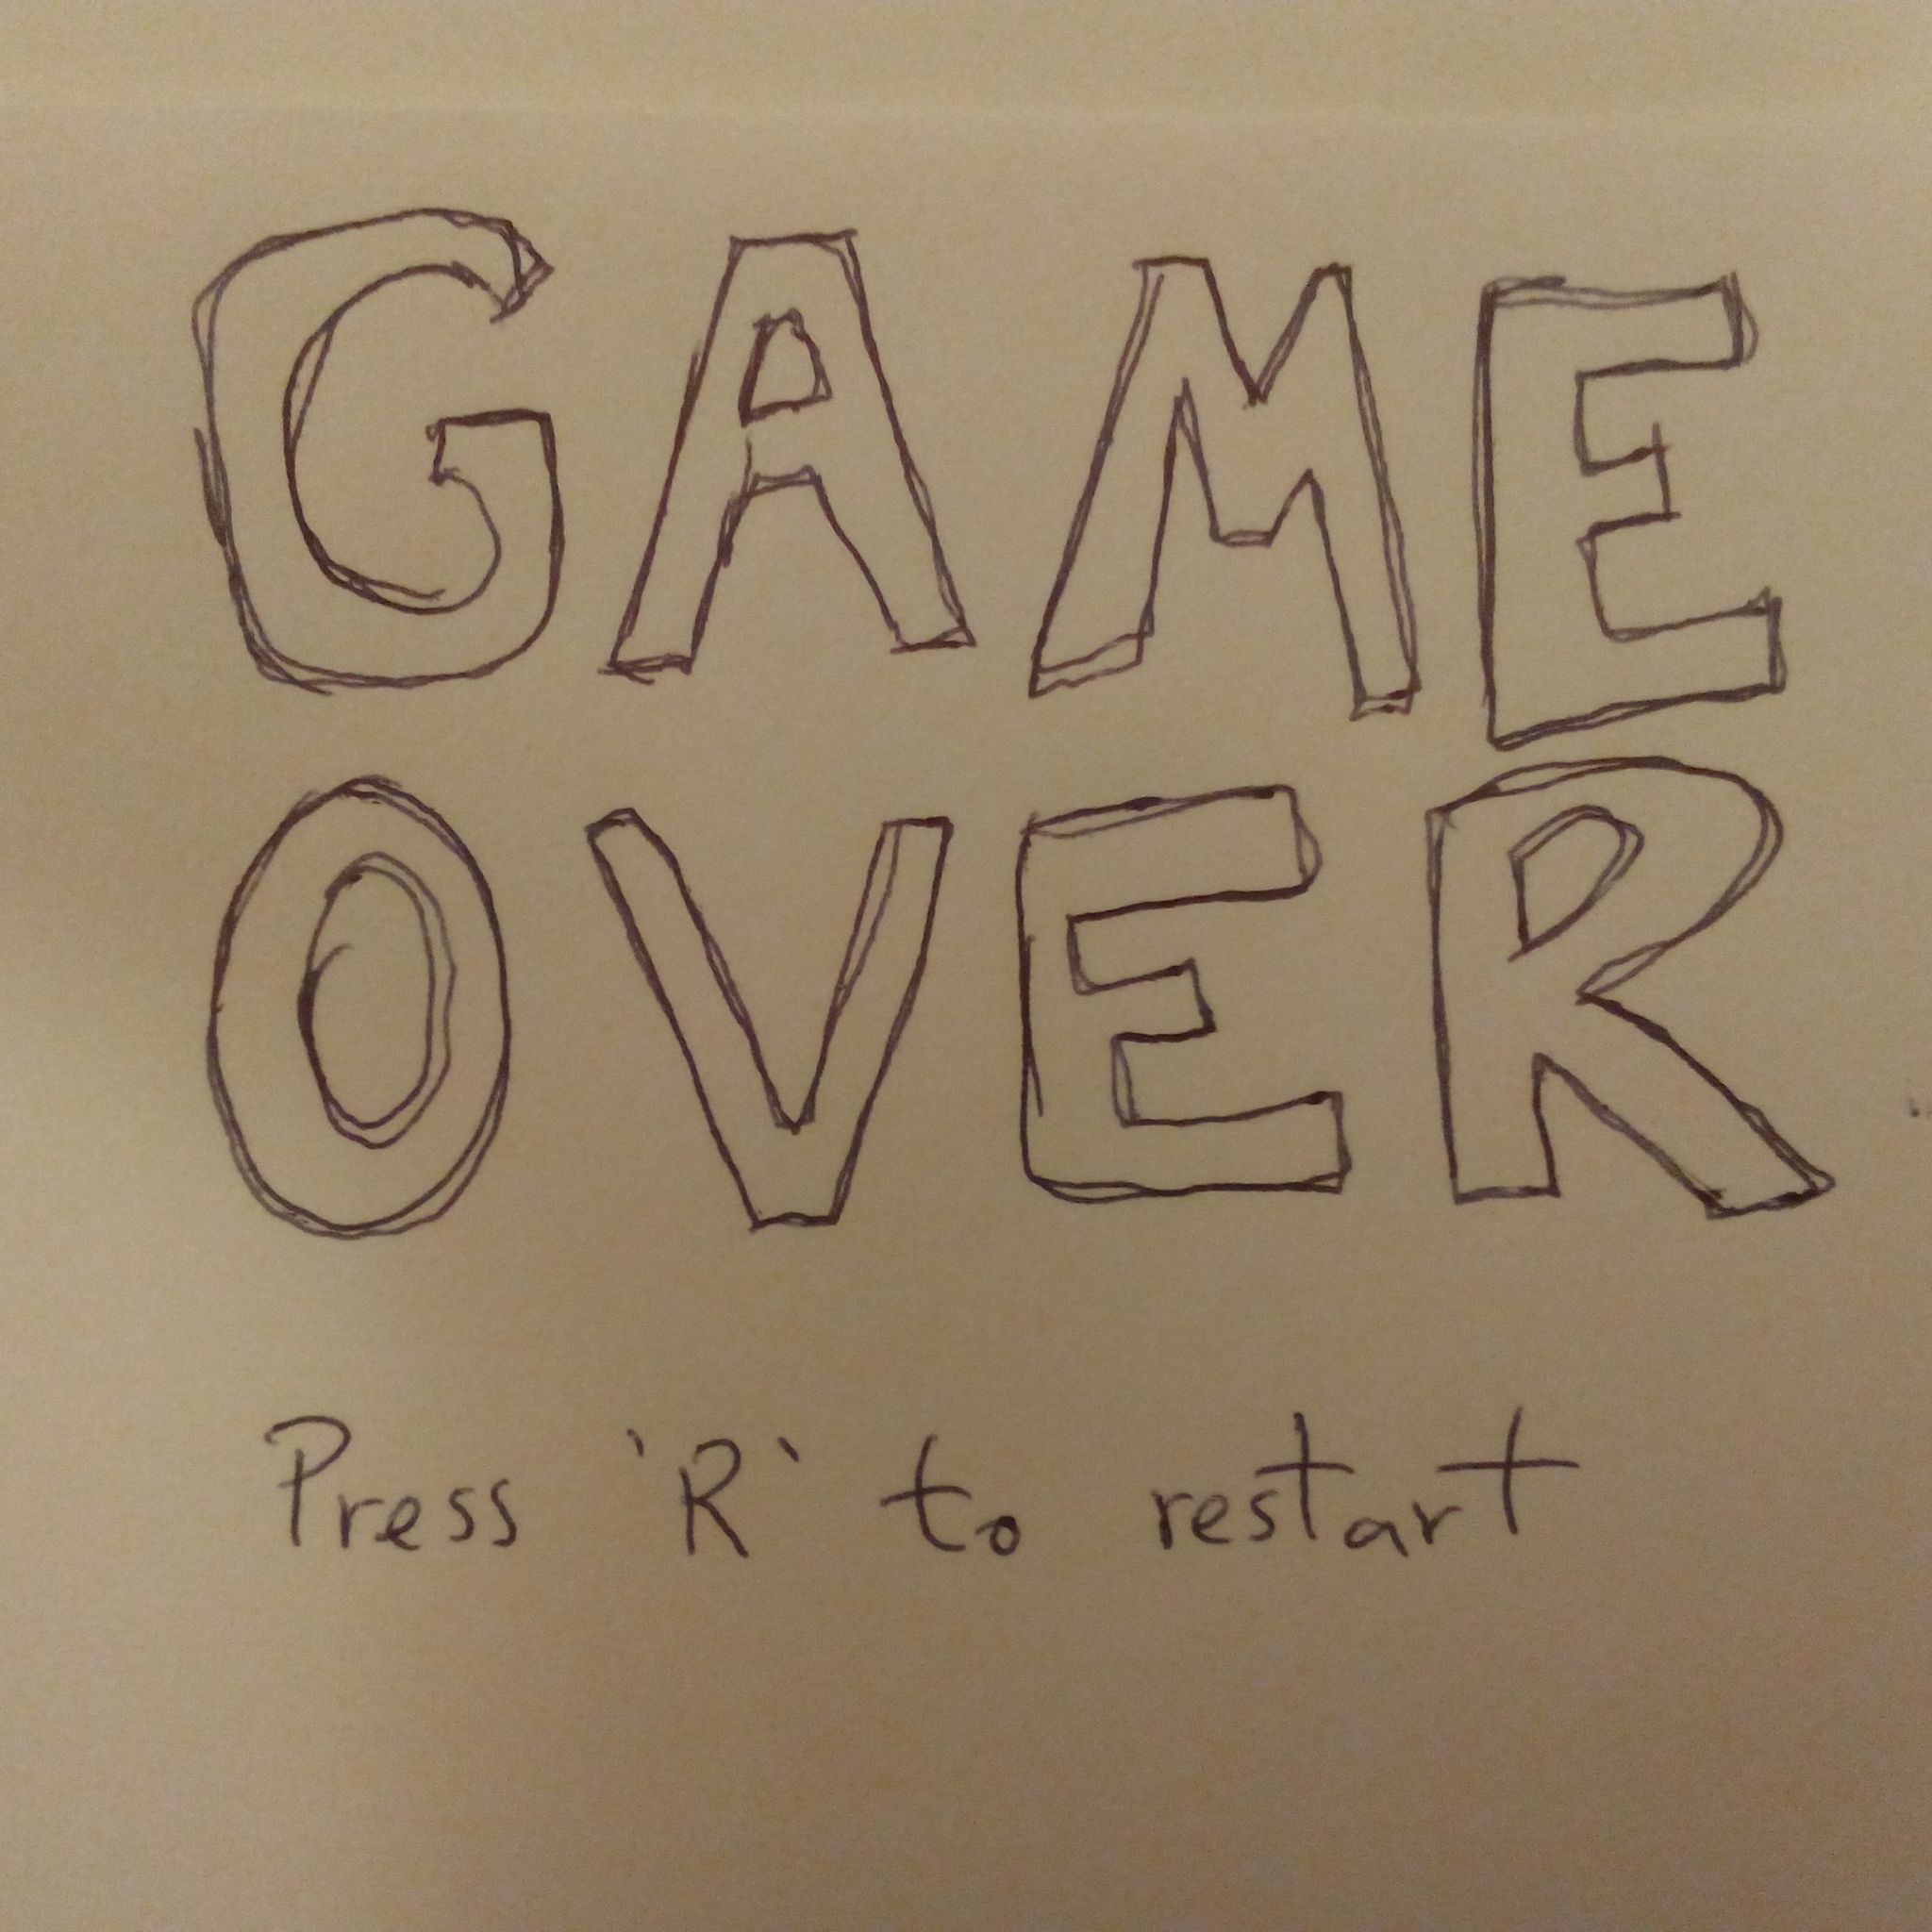 GAME
OVER
Press 'R' to restart